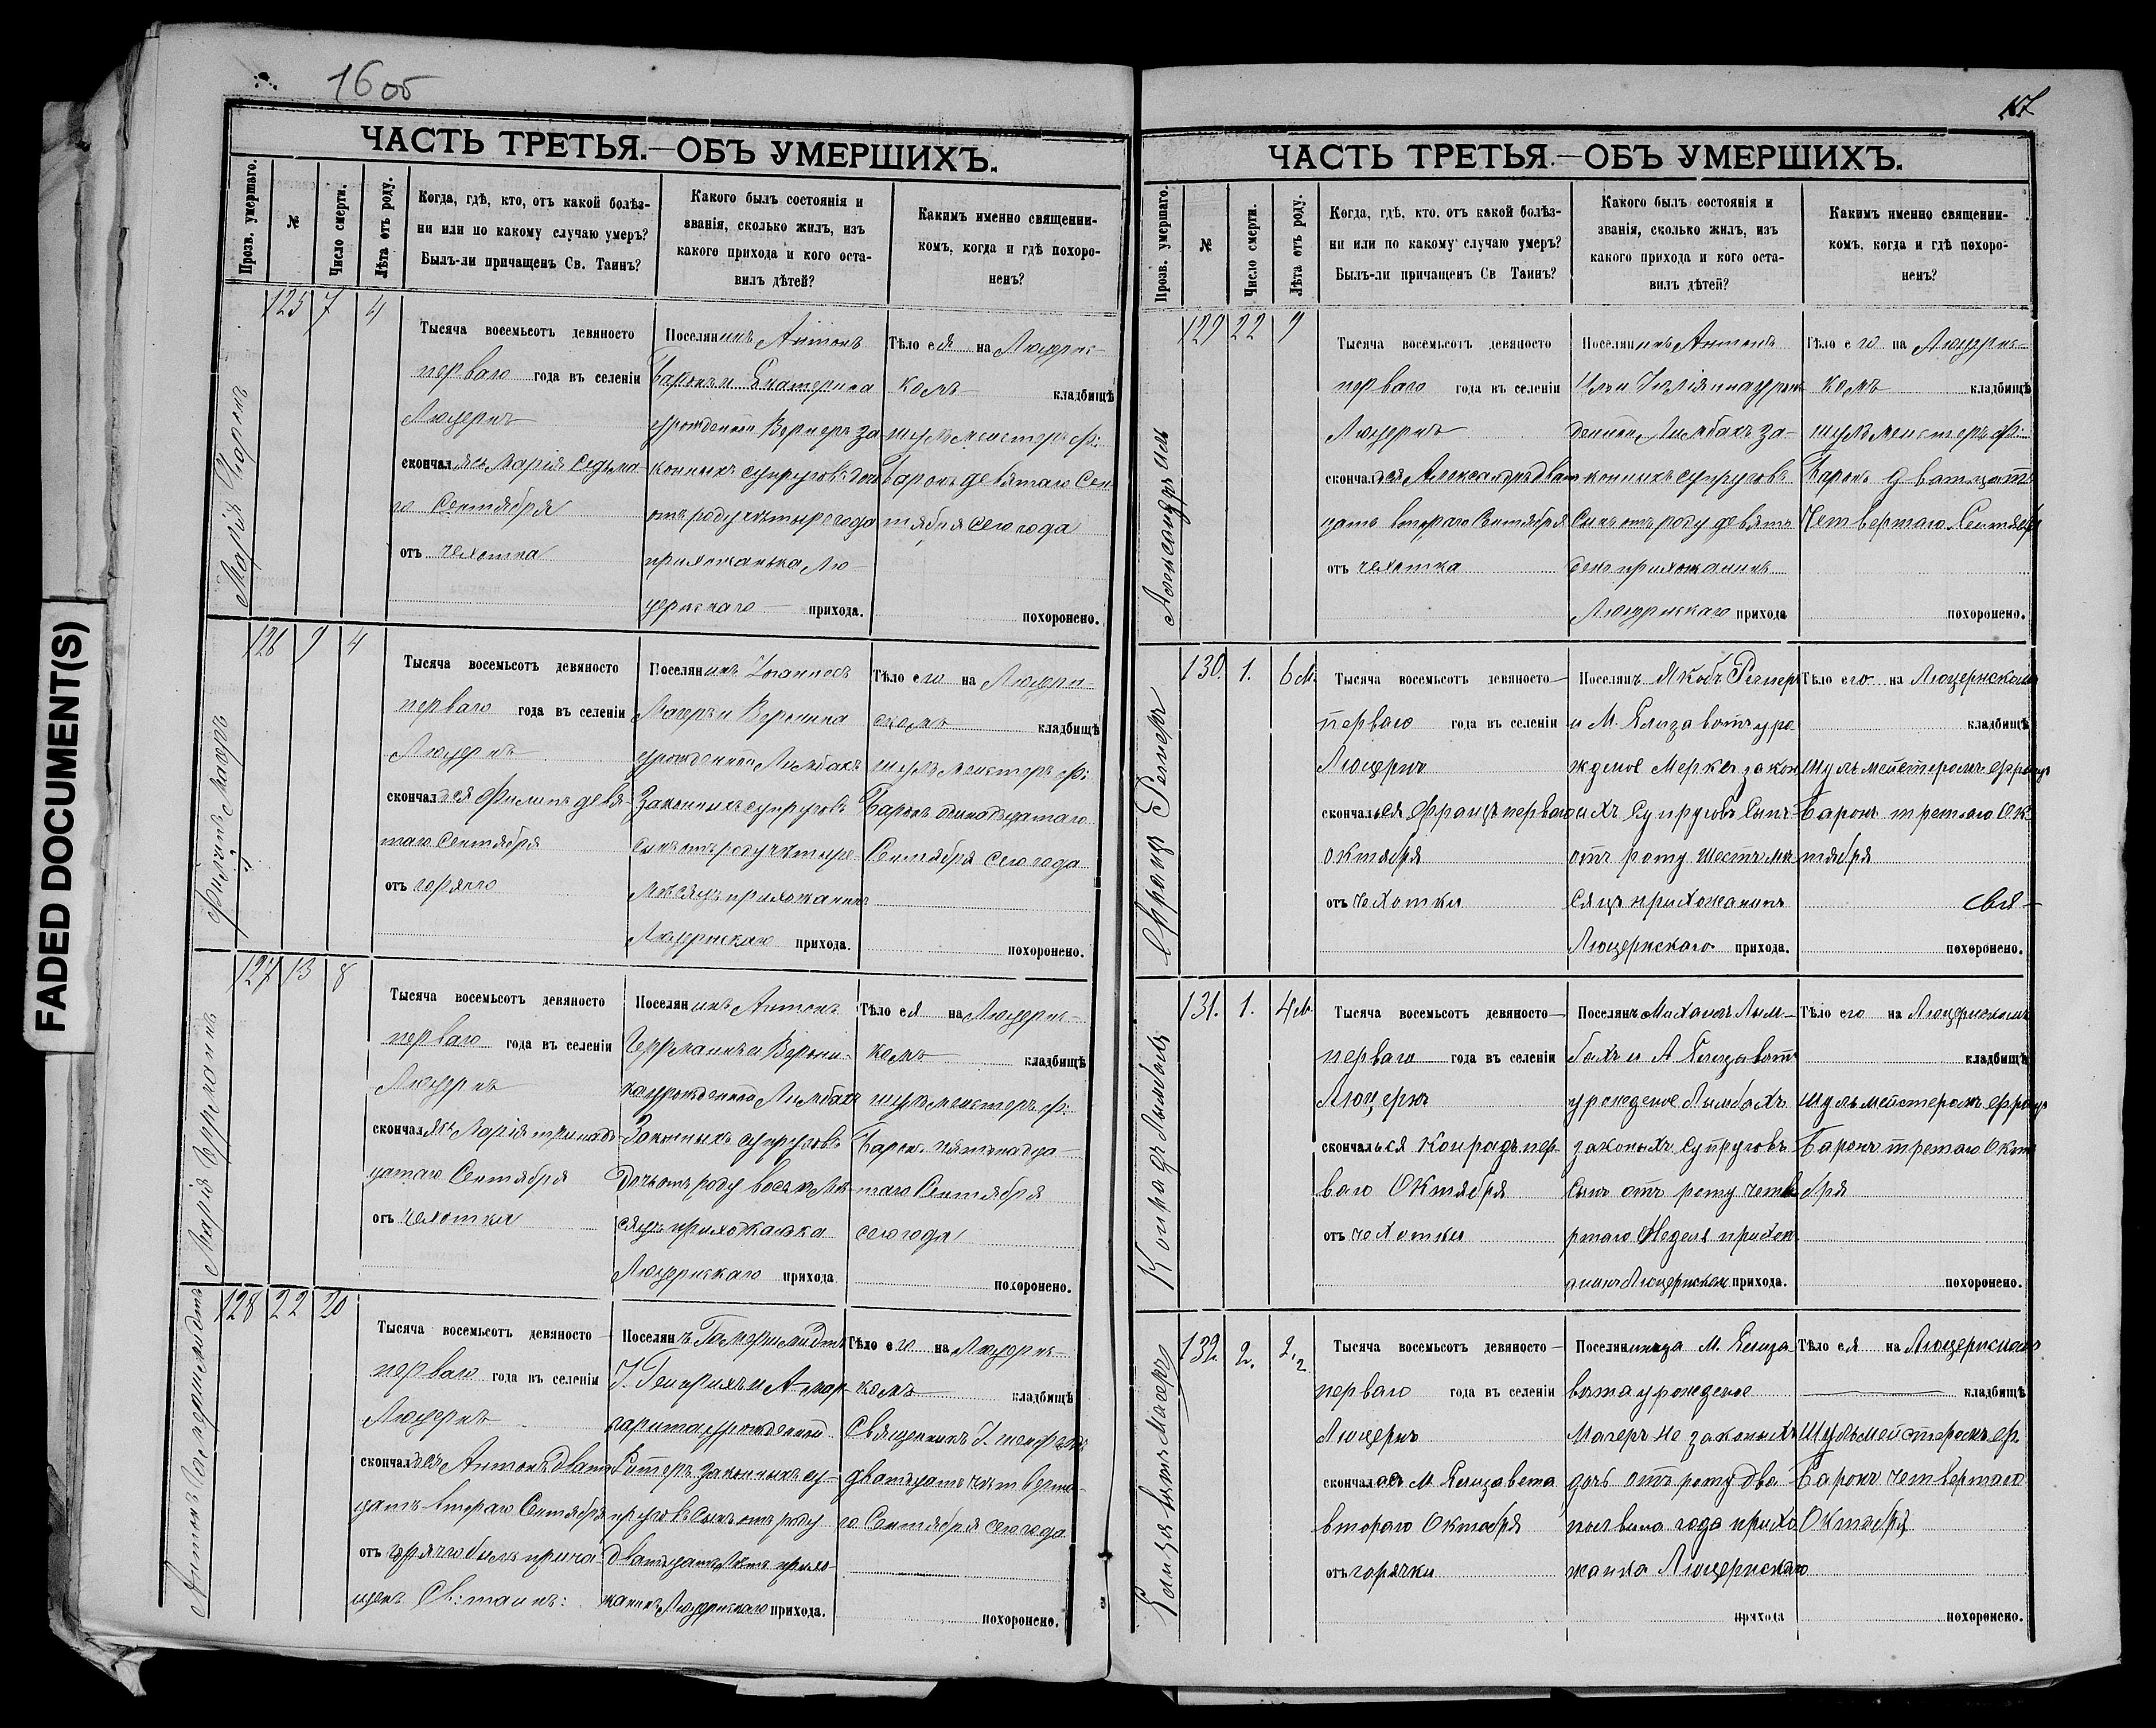 FADED DOCUMENT(S)
16 об
ЧАСТЬ ТРЕТЬЯ.—ОБЪ УМЕРШИХЪ.
Прозв. умершаго.
№
Число смерти.
Лѣта отъ роду.
Когда, гдѣ, кто, отъ какой болѣз-
ни или по какому случаю умеръ?
Былъ-ли причащенъ Св. Таинъ?
Какого былъ состоянія и
званія, сколько жилъ, изъ
какого прихода и кого оста-
вилъ дѣтей?
Какимъ именно священни-
комъ, когда и гдѣ похоро-
ненъ?
Марія
125 7 4
Тысяча восемьсотъ девяносто
перваго года въ селеніи
Люцернъ
скончалясь Марія седьма-
го Сентября
отъ чехотка
Поселянинъ Антонъ
Баронъ и Екатерина
урожденной Вернеръ за
конныхъ супруговъ дочь
отъ роду четыре года
прихожанька Лю-
цернскаго прихода.
Тѣло ея на Люцернс-
комъ кладбищѣ
шульмейстеръ Ф:
Баронъ девятаго Сен-
тября сего года
похоронено.
Филипъ Магеръ
126 9 4
Тысяча восемьсотъ девяносто
перваго года въ селеніи
Люцернъ
скончался Филипъ девя-
таго Сентября
отъ горячо
Поселянинъ Іоаннесъ
Магеръ и Вероника
урожденной Лимбахъ
Законныхъ супруговъ
сынъ отъ роду четыре
Мѣсяцъ прихожанинъ
Люцернскаго прихода.
Тѣло его на Люцерн-
скомъ кладбищѣ
шульмейстеръ Ф:
Баронъ одинадцатаго
Сентября сего года
похоронено.
Марія Германнъ
127 13 8
Тысяча восемьсотъ девяносто
перваго года въ селеніи
Люцернъ
скончалясь Марія тринад-
цатаго Сентября
отъ чехотки
Поселянинъ Антонъ
Германнъ и Верони-
ка урожденной Лимбахъ
Законныхъ супруговъ
Дочь отъ роду восемь Мѣ-
сяцъ прихожанька
Люцернскаго прихода
Тѣло ея на Люцернс-
комъ кладбищѣ
шульмейстеръ Ф:
Баронъ пятнадца-
таго Сентября
сего года
похоронено.
Антонъ
128 22 20
Тысяча восемьсотъ девяносто
перваго года въ селеніи
Люцернъ
скончался Антонъ двад-
цать втораго Сентября
отъ горячо былъ прича-
щенъ Св: таинъ:
Поселян
І. Генрихъ и А Мар-
гарита урожденной
Риттеръ законныхъ су-
пруговъ сынъ отъ роду
двадцать Лѣтъ прихо-
жанинъ Люцернскаго прихода.
Тѣло его на Люцернс-
комъ кладбищѣ
Священникъ І.
двадцать четверта-
го Сентября сего года
похоронено.
17
ЧАСТЬ ТРЕТЬЯ.—ОБЪ УМЕРШИХЪ.
Прозв. умершаго.
№
Число смерти.
Лѣта отъ роду.
Когда, гдѣ, кто, отъ какой болѣз-
ни или по какому случаю умеръ?
Былъ-ли причащенъ Св Таинъ?
Какого былъ состоянія и
званія, сколько жилъ, изъ
какого прихода и кого оста-
вилъ дѣтей?
Какимъ именно священни-
комъ, когда и гдѣ похоро-
ненъ?
Александръ
129 22 9
Тысяча восемьсотъ девяносто
перваго года въ селеніи
Люцернъ
скончался Александръ двад-
цать втораго Сентября
отъ чехотка
Поселянинъ Антонъ
и Юліянна урож-
денной Лимбахъ за-
конныхъ супруговъ
Сынъ отъ роду девять
прихожанинъ
Люцернскаго прихода
Тѣло его на Люцернс-
комъ кладбищѣ
шульмейстеръ Ф:
Баронъ двадцать
Четвертаго Сентября
похоронено.
Францъ
130. 1. 6 М.
Тысяча восемьсотъ девяносто—
перваго года въ селеніи
Люцернъ
скончалься Францъ перваго
октября
отъ чехотки
Поселянъ Якобъ
и М. Елизаветъ уро
жденое Меркеръ закон
ихъ Супруговъ Сынъ
отъ роту шесть мѣ
сяцъ прихожанинъ
Люцернскаго прихода.
Тѣло его на Люцернскомъ
кладбищѣ
Шульмейстеромъ Францъ
Баронъ третаго Ок
тября
похоронено.
Конрадъ Лымбахъ
131. 1. 4 М.
Тысяча восемьсотъ девяносто—
перваго года въ селеніи
Люцернъ
скончалься Конрадъ пер-
ваго Октября
отъ чехотки
Поселянъ Михаилъ Лым-
бахъ и А Елизаветъ
урожденое Лымбахъ
законыхъ Супруговъ
Сынъ отъ роту четве
ртаго Неделя прихож
анинъ Люцернскаго прихода.
Тѣло его на Люцернскомъ
кладбищѣ
Шульмейстеромъ Францъ
Баронъ третаго Октя
бря
похоронено.
Елизаветъ Магеръ
132. 2. 2.2
Тысяча восемьсотъ девяносто—
перваго года въ селеніи
Люцернъ
скончалась М. Елизавета
втораго Октября
отъ горячки
Поселянинца М. Елиза
вета урожденое
Магеръ не законыхъ
дочь отъ роту два
половина года прихо
жанка Люцернскаго
прихода
Тѣло ея на Люцернскомъ
кладбищѣ
Шульмейстеромъ Фр.
Баронъ четвертаго
Октября
похоронено.